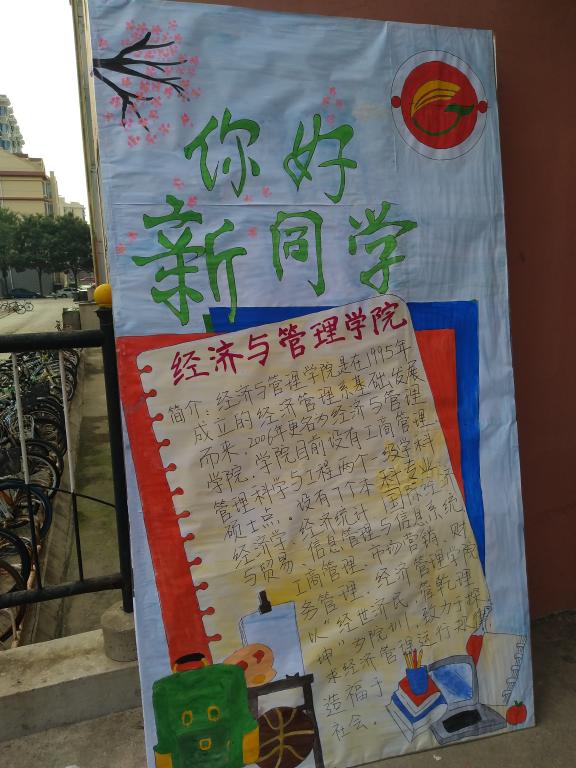 你好
新同学
经济与管理学院
简介:经济与管理学院是在1995年
成立的经济管理系基础发展
而来,2006年更名为经济与管理
学院。学院目前设有工商管理
管理科学与工程两个一级学科
硕士点。设有7个本科专业:
经济学、经济统计、国际经济
与贸易、信息管理与信息系统
工商管理、市场营销、财
务管理。经济管理学院
以“经世济民,管乾理
坤”为院训,致力于探
求经济管理运行规律
造福于
社会。